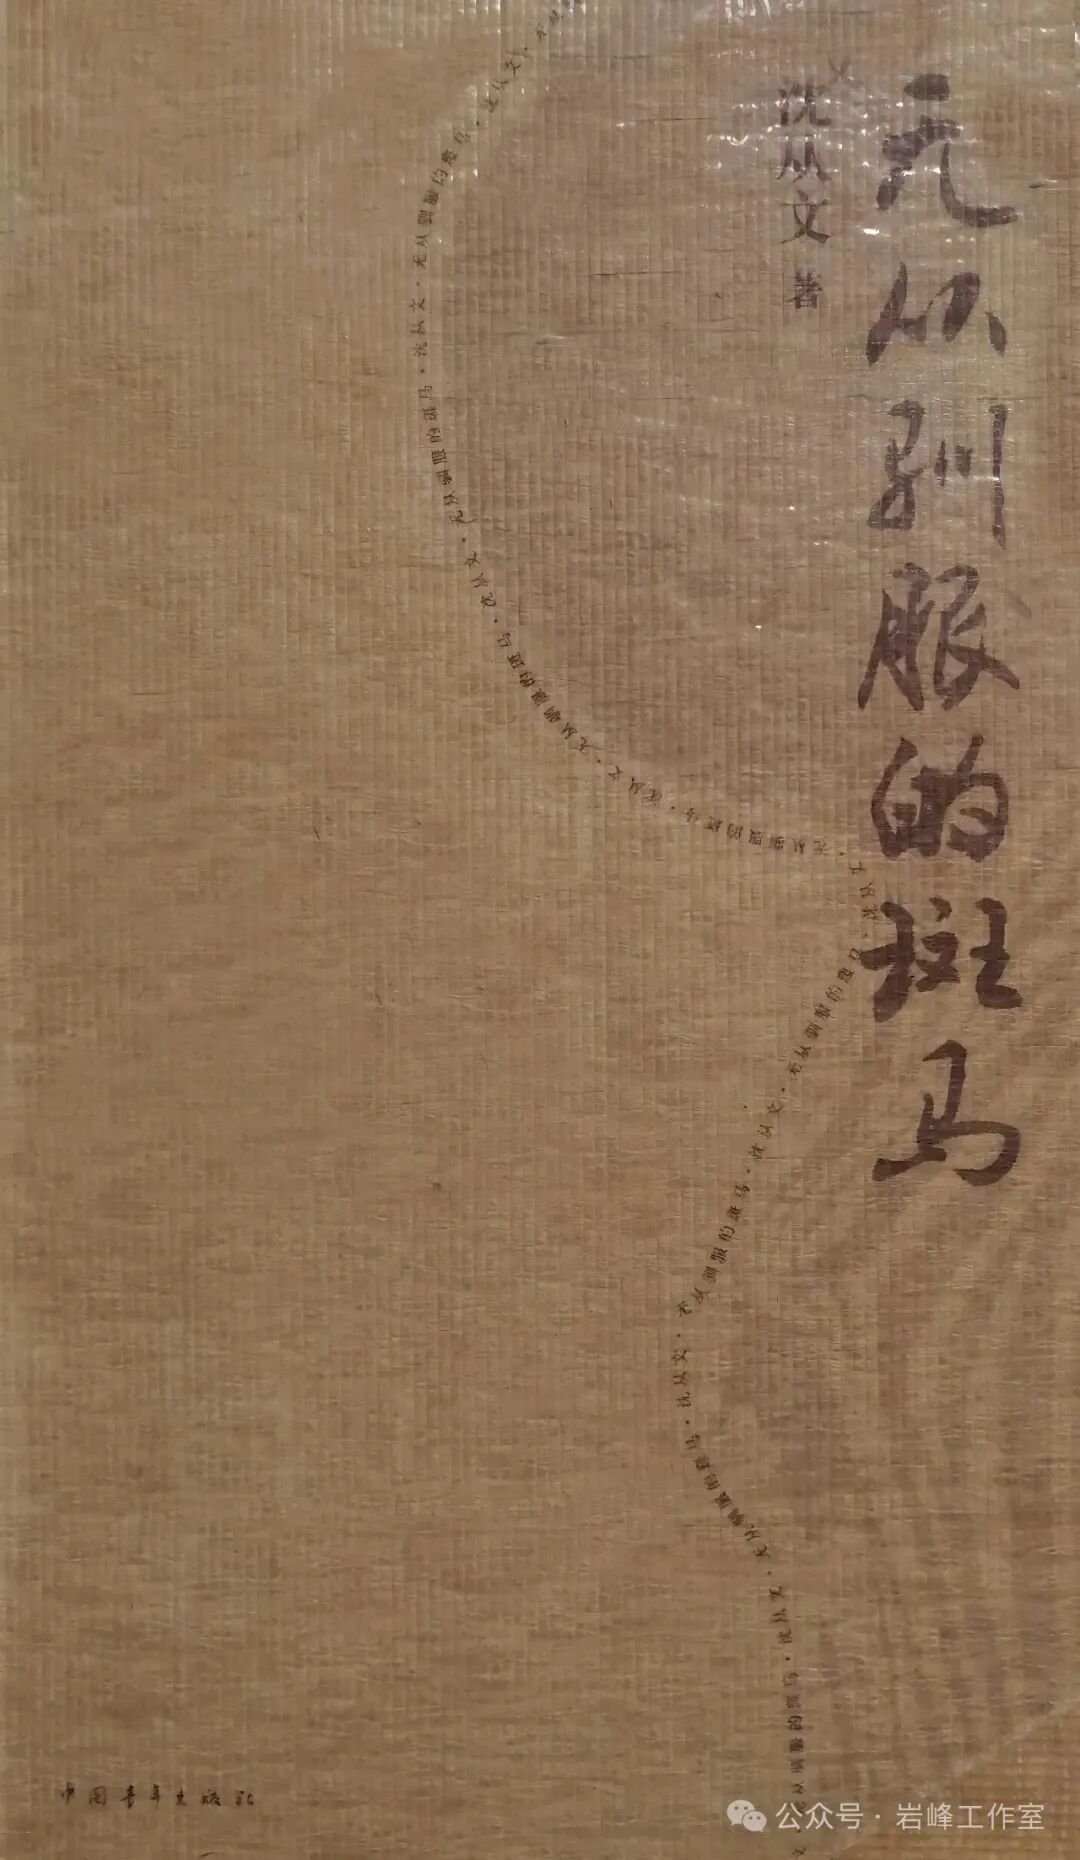 无从驯服的斑马
沈从文 著
无从驯服的斑马·沈从文·无从驯服的斑马·沈从文·无从驯服的斑马·沈从文·无从驯服的斑马·沈从文·无从驯服的斑马·沈从文·无从驯服的斑马·沈从文·无从驯服的斑马·沈从文·无从驯服的斑马
中国青年出版社
公众号·岩峰工作室